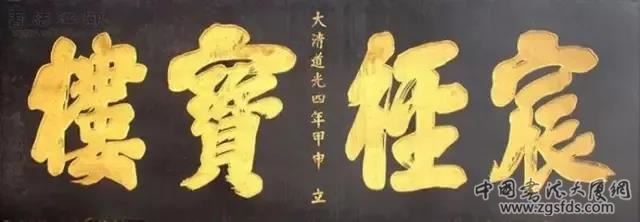 宸
寶樓
大清道光四年甲申 立
中國書法大厦網
www.zgsfds.com